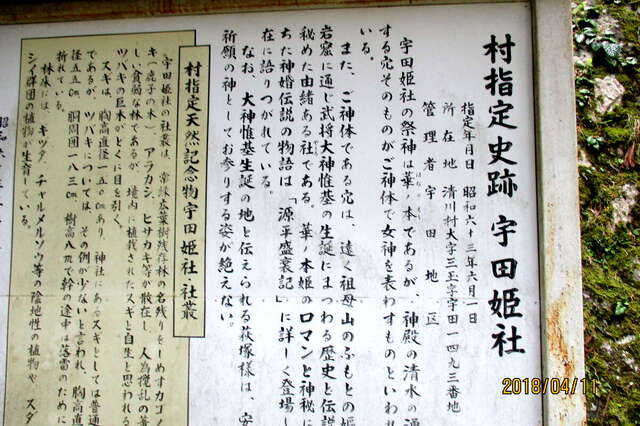 村指定史跡 宇田姫社
指定年月日 昭和六十三年六月一日
所在地 清川村大字三玉字宇田一四九三番地
管理者 宇田地区
宇田姫社の祭神は華ノ本であるが、神殿の清水の湧
する穴そのものがご神体で女神を表わすものといわれ
いる。
また、ご神体である穴は、遠く祖母山のふもとの姫
岩窟に通じ武将大神惟基の生誕にまつわる歴史と伝説
秘めた由緒ある社である。華ノ本姫のロマンと神秘に
ちた神婚伝説の物語は「源平盛衰記」に詳しく登場し
在に語りつがれている。
なお、大神惟基生誕の地と伝えられる萩塚様は 安
祈願の神としてお参りする姿が絶えない。
村指定天然記念物宇田姫社 社叢
宇田姫社の社叢は、常緑広葉樹残存林の名残りをとどめすカゴノ
キ(鹿子の木)、アラカシ、ヒサカキ等が散在し、人為攪乱の著
しい貧弱な林であるが、境内に植栽されたスギと自生と思われる
ツバキの巨木がとくに目を引く。
スギは、胸高直径一五〇㎝あり、神社にあるスギとしては普通
であるが、ツバキについては、その例が少ないと言われ、胸高直
径五五㎝、胴周囲一八三㎝、樹高八mで幹の途中は落雷のために
折れている。
林床には、キヅタ、チャルメルソウ等の陰地性の植物や、スダ
シイ群団の植物が生育している。
昭和
2018/04/11